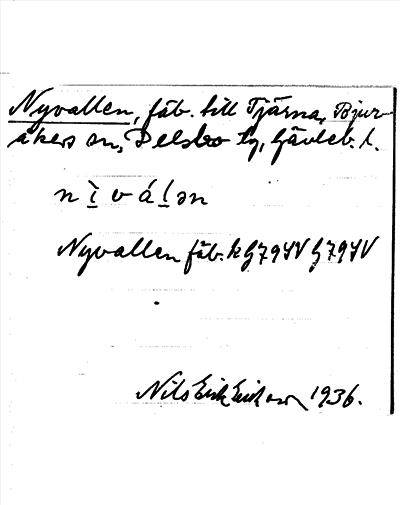 Nyvallen, fäb. till Tjärna, Bjur-
åkers sn, Delsbo tg, Gävleb. l.
n ì̱ v á l̠ ə n
Nyvallen fäb. k G794SV G794SV
Nils Erik Erikson 1936.